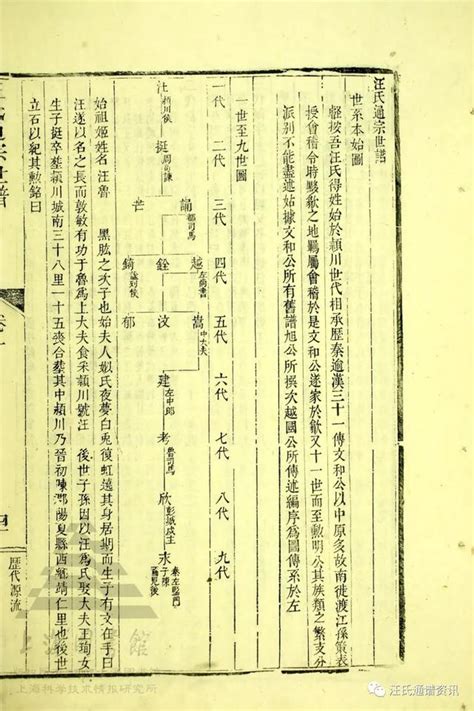 汪氏通宗世譜
世系本始圖
按吾汪氏得姓始於潁川世代相承歷秦逾漢三十一傳文和公以中原多故南徙渡江孫策表
授會稽令時黟歙之地羈屬會稽於是文和公遂家於歙又十一世而至勲明公其族類之繁支分
派别不能盡述姑據文和公所有舊譜旭公所撰次越國公所傳述編序為圖傳系於左
一世至九世圖
一代 二代 三代 四代 五代 六代 七代 八代 九代
汪 潁川侯
挺 周司諫
誦 都司馬
芒
越 左尚書
銓
錡 諡刎侯
嵩 中大夫
汝
郁
建 左中郎
考 魯司馬
欣 彭城成王
末
始祖姬姓名汪魯 黑肱之次子也始夫人姒氏夜夢白虹遶其身居期而生子有文在手曰
汪遂以名之長而敦敏有功于魯爲上大夫食采潁川號汪 後世子孫因以汪爲氏娶大夫王珣女
生子挺卒葬潁川城南三十八里二十五喪合葬其中潁川乃晉初陳陽夏縣西靖仁里也後世
立石以紀其勲銘曰
歷代源流
上海科学技术情报研究所
汪氏通谱资讯